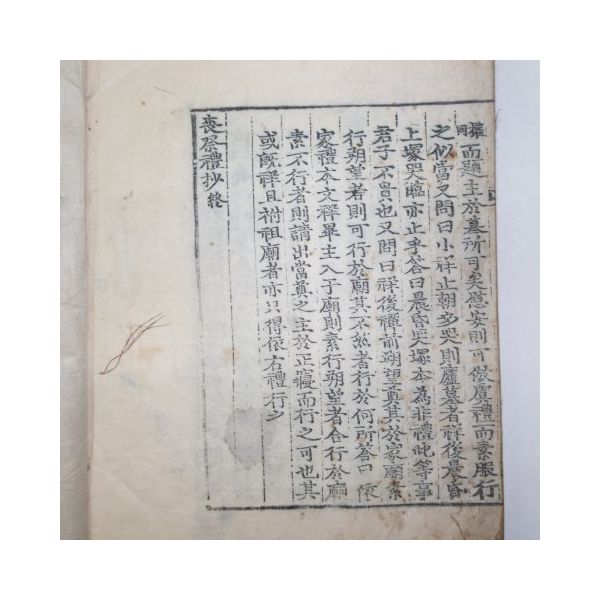 權
同
而題主於墓所可矣慰安則可倣虞禮而素服行
之似當又問曰小祥止朝夕哭則廬墓者祥後晨昏
上塚哭臨亦止乎答曰晨昏哭塚本為非禮此等事
君子不貴也又問曰祥後禫前朔望奠其於家廟素
行朔望者則可行於廟其不然者行於何所答曰依
家禮本文祥畢主入于廟則素行朔望者合行於廟
素不行者則請出當奠之主於正寢而行之可也其
或既祥且祔祖廟者亦只得依右禮行之
喪祭禮抄終